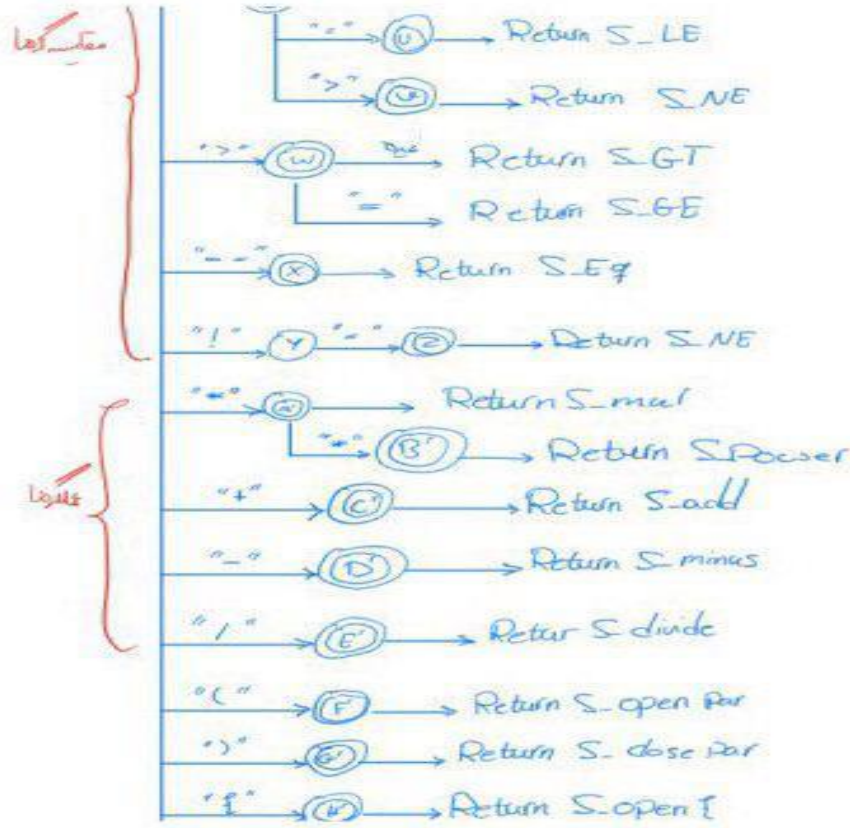 مقایسه گرها
"=" U Return S_LE
">" V Return S_NE
">" W Return S_GT
"=" Return S_GE
"==" X Return S_Eq
"!" Y "=" Z Return S_NE
"*" A' Return S_mul
"*" B' Return S_Power
عملگرها
"+" C' Return S_add
"-" D' Return S_minus
"/" E' Retur S_divide
"(" F' Return S_open Par
")" G' Return S_close Par
"{" H' Return S_open {